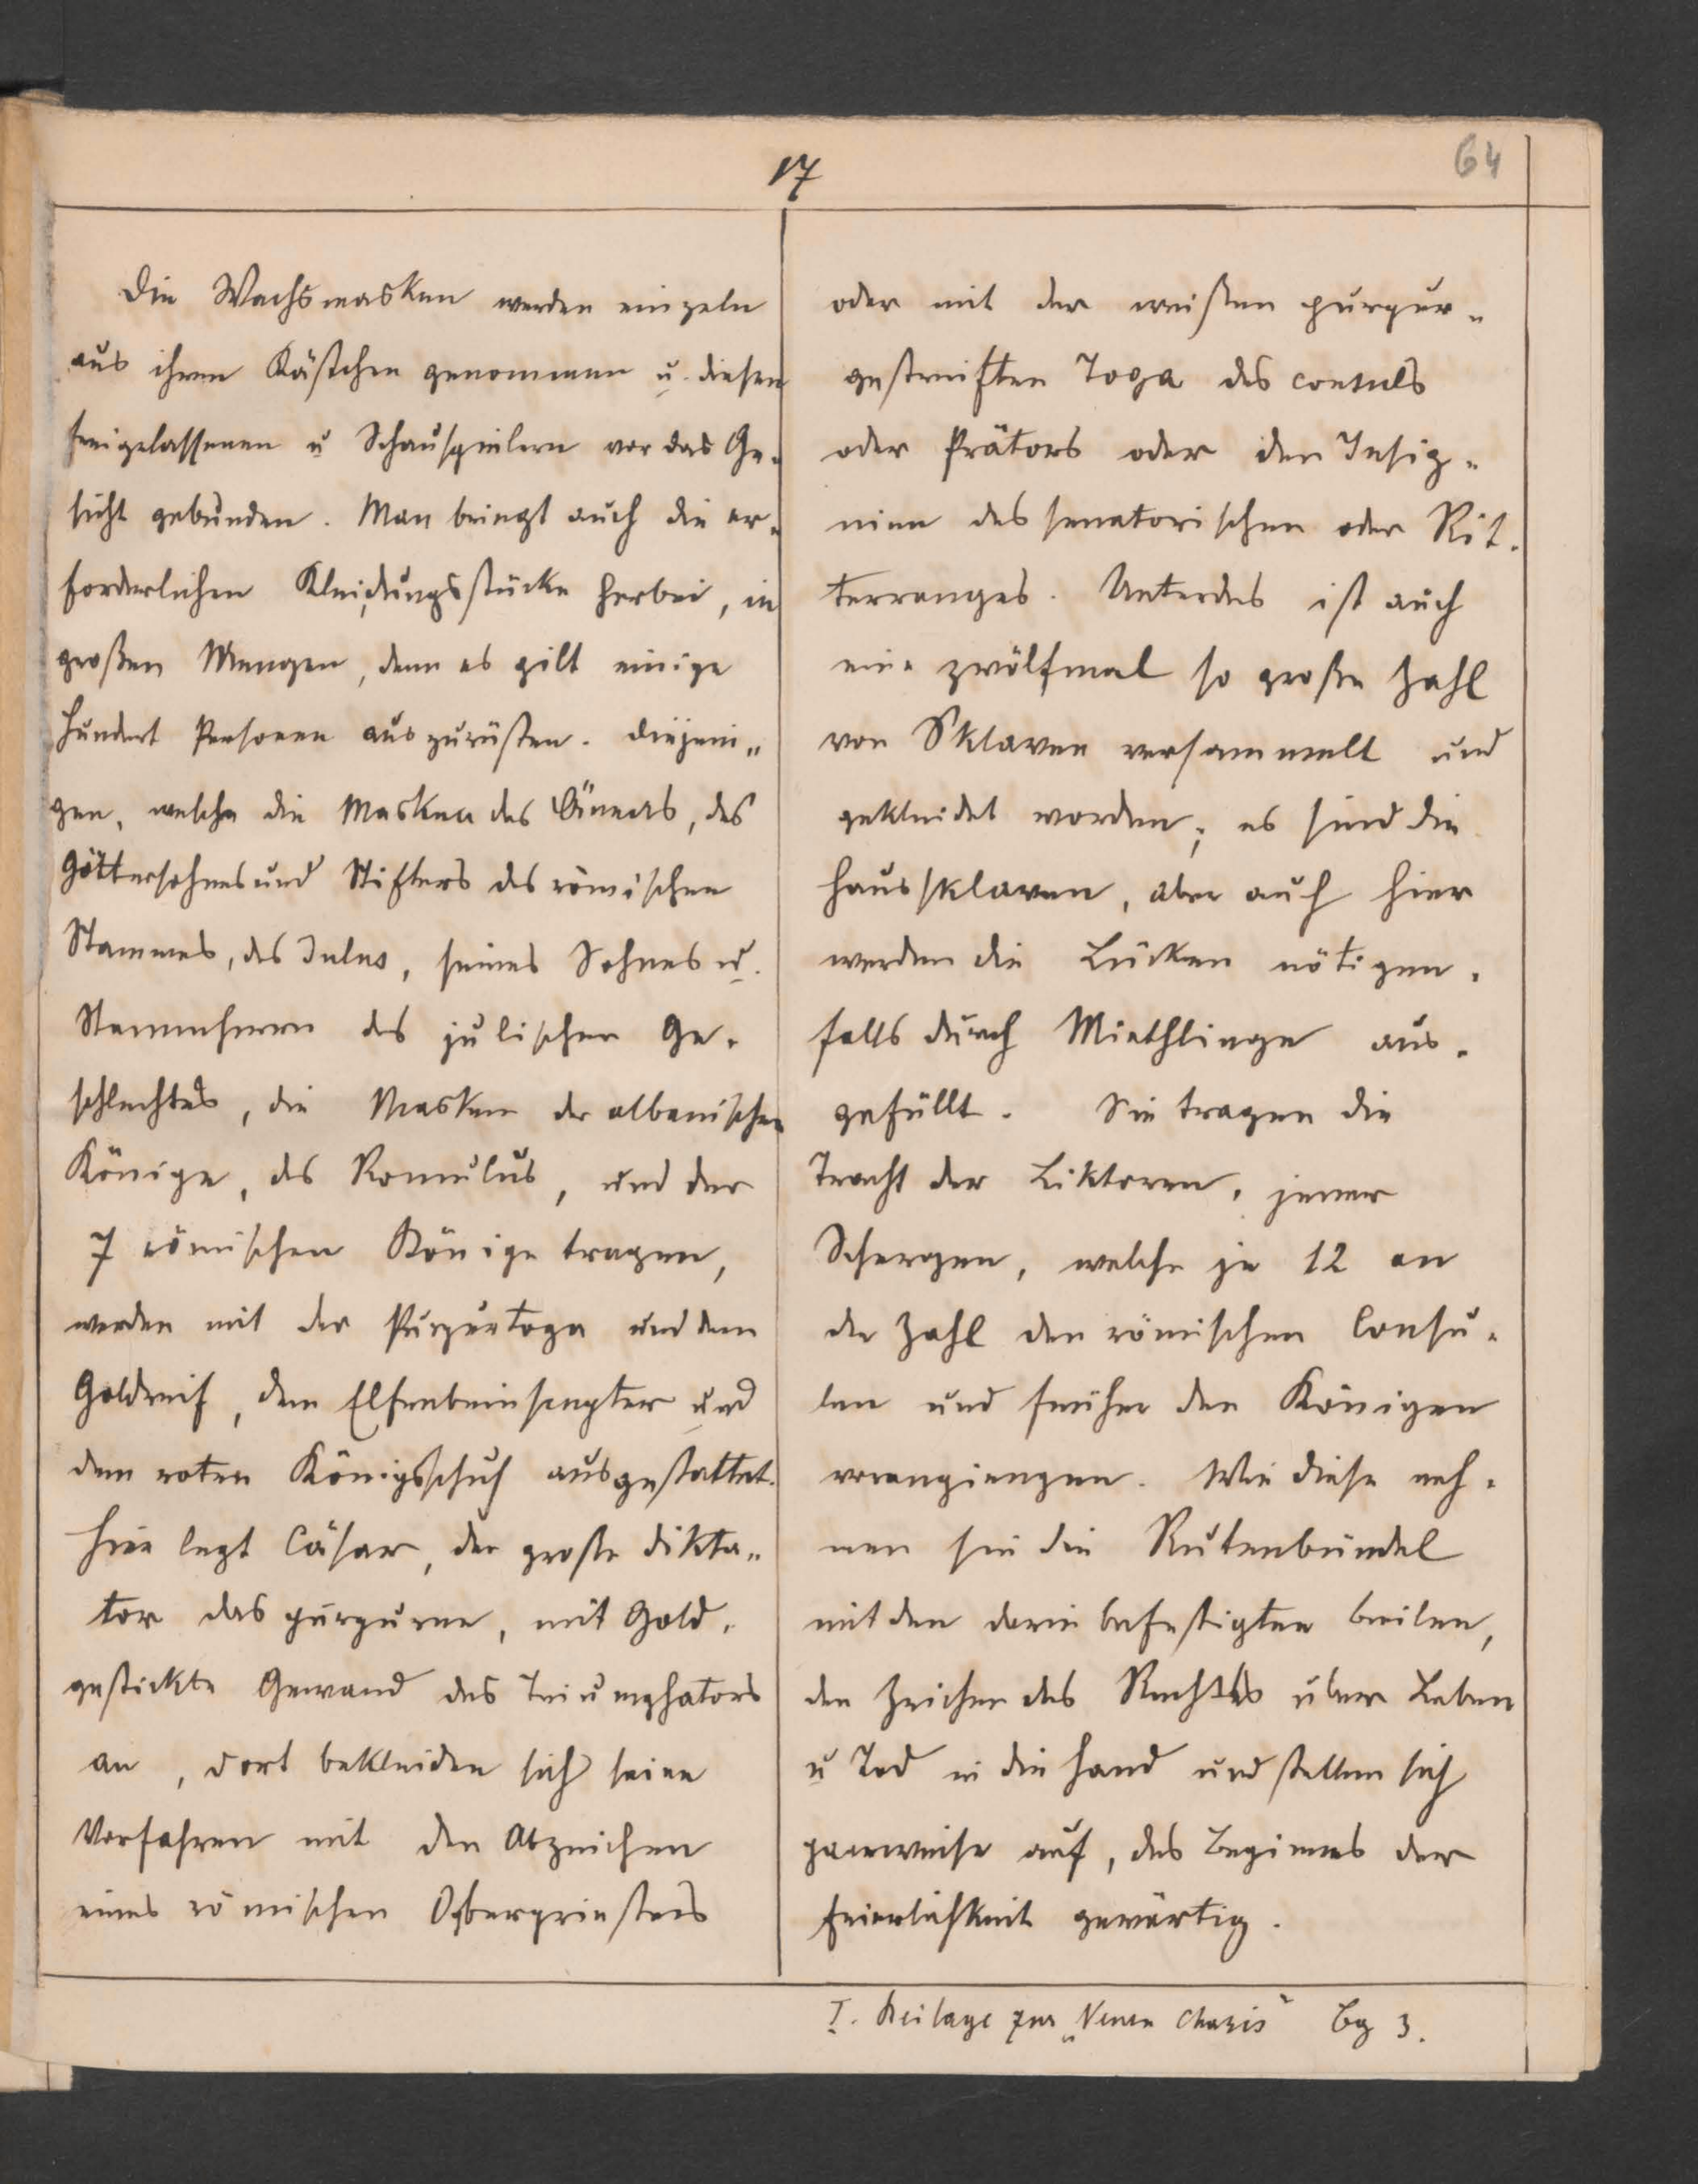 17
64
Die Wachsmasken werden einzeln
aus ihren Kästchen genommen u. diesen
freigelassenen u Schauspielern vor das Ge-
sicht gebunden. Man bringt auch die er-
forderlichen Kleidungsstücke herbei, in
großen Mengen, denn es gilt einige
hundert Personen auszurüsten. Diejeni-
gen, welche die Masken des Äneas, des
Göttersohnes und Stifters des römischen
Stammes, des Julus, seines Sohnes u.
Stammherrn des julischen Ge-
schlechtes, die Masken der albanischen
Könige, des Romulus, und der
7 römischen Könige tragen,
werden mit der Purpurtoga und dem
Goldreif, dem Elfenbeinscepter und
dem roten Königsschuh ausgestattet.
Hier legt Cäsar, der große Dikta-
tor das purpurne, mit Gold-
gestickte Gewand des Triumphators
an, dort bekleiden sich seine
Vorfahren mit den Abzeichen
eines römischen Oberpriesters
oder mit der weißen purpur-
gestreiften Toga des consuls
oder Prätors oder den Insig-
nien des senatorischen oder Rit-
terranges. Unterdes ist auch
eine zwölfmal so große Zahl
von Sklaven versammelt und
gekleidet worden; es sind die
Haussklaven, aber auch hier
werden die Lücken nötigen-
falls durch Miethlinge aus-
gefüllt. Sie tragen die
Tracht der Liktoren, jener
Schergen, welche je 12 an
der Zahl den römischen Consu-
len und früher den Königen
vorangiengen. Wie diese neh-
men sie die Rutenbündel
mit den darin befestigten beilen,
den Zeichen des Rechtes über Leben
u Tod in die Hand und stellen sich
paarweise auf, des Beginnes der
Feierlichkeit gewärtig.
I. Beilage zur „Neuen Charis" Bg 3.